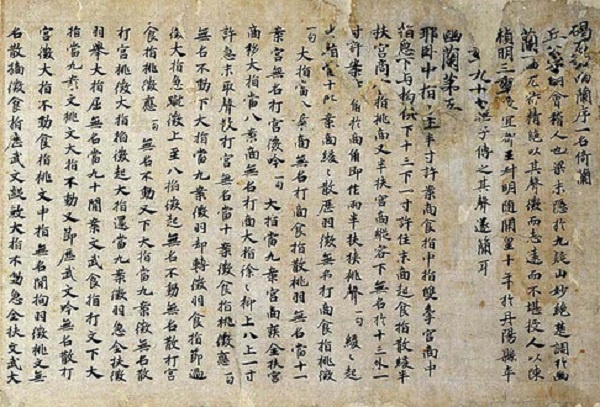 碣石調幽蘭序一名倚蘭
丘公字明會稽人也梁末隱於九疑山妙絕楚調於幽
蘭一曲尤特精絕以其聲微而志遠而不堪授人以陳
禎明三年授宜都王叔明隨開皇十年於丹陽縣卒
年九十七無子傳之其聲遂簡耳
幽蘭第五
耶臥中指十上半寸許案商食指中指雙牽宮商中
指急下与拘俱下十三下一寸許住末商起食指散緩半
扶宮商食指挑商又半扶宮商縱容下無名於十三外一
寸許案商角於商角即作兩半扶挾挑聲一句 緩緩起
無名散當十案商緩緩散歷羽徵無名打商食指挑徵
一句 大指當八案商無名打商食指散挑羽無名當十一
案宮無名打宮徵吟一句 大指當九案宮商疾全扶宮
商移大指當八案商無名打商大指徐徐抑上八上一寸
許急末取聲散打宮無名當十案徵食指挑徵應一句
無名不動下大指當九案徵羽却轉徵羽食指節過
徵大指急蹴徵上至八抑徵起無名不動無名散打宮
食指挑徵應一句 無名不動又下大指當九案徵無名散
打宮挑徵大指抑徵起大指還當九案徵羽急全扶徵
羽舉大指屈無名當九十間案文武食指打文下大
指當九案文挑文大指不動又節歷武文吟無名散打
宮徵大指不動食指挑文中指無名間拘羽徵挑文無
名散擿徵食指歷武文大指不動急全扶文武大